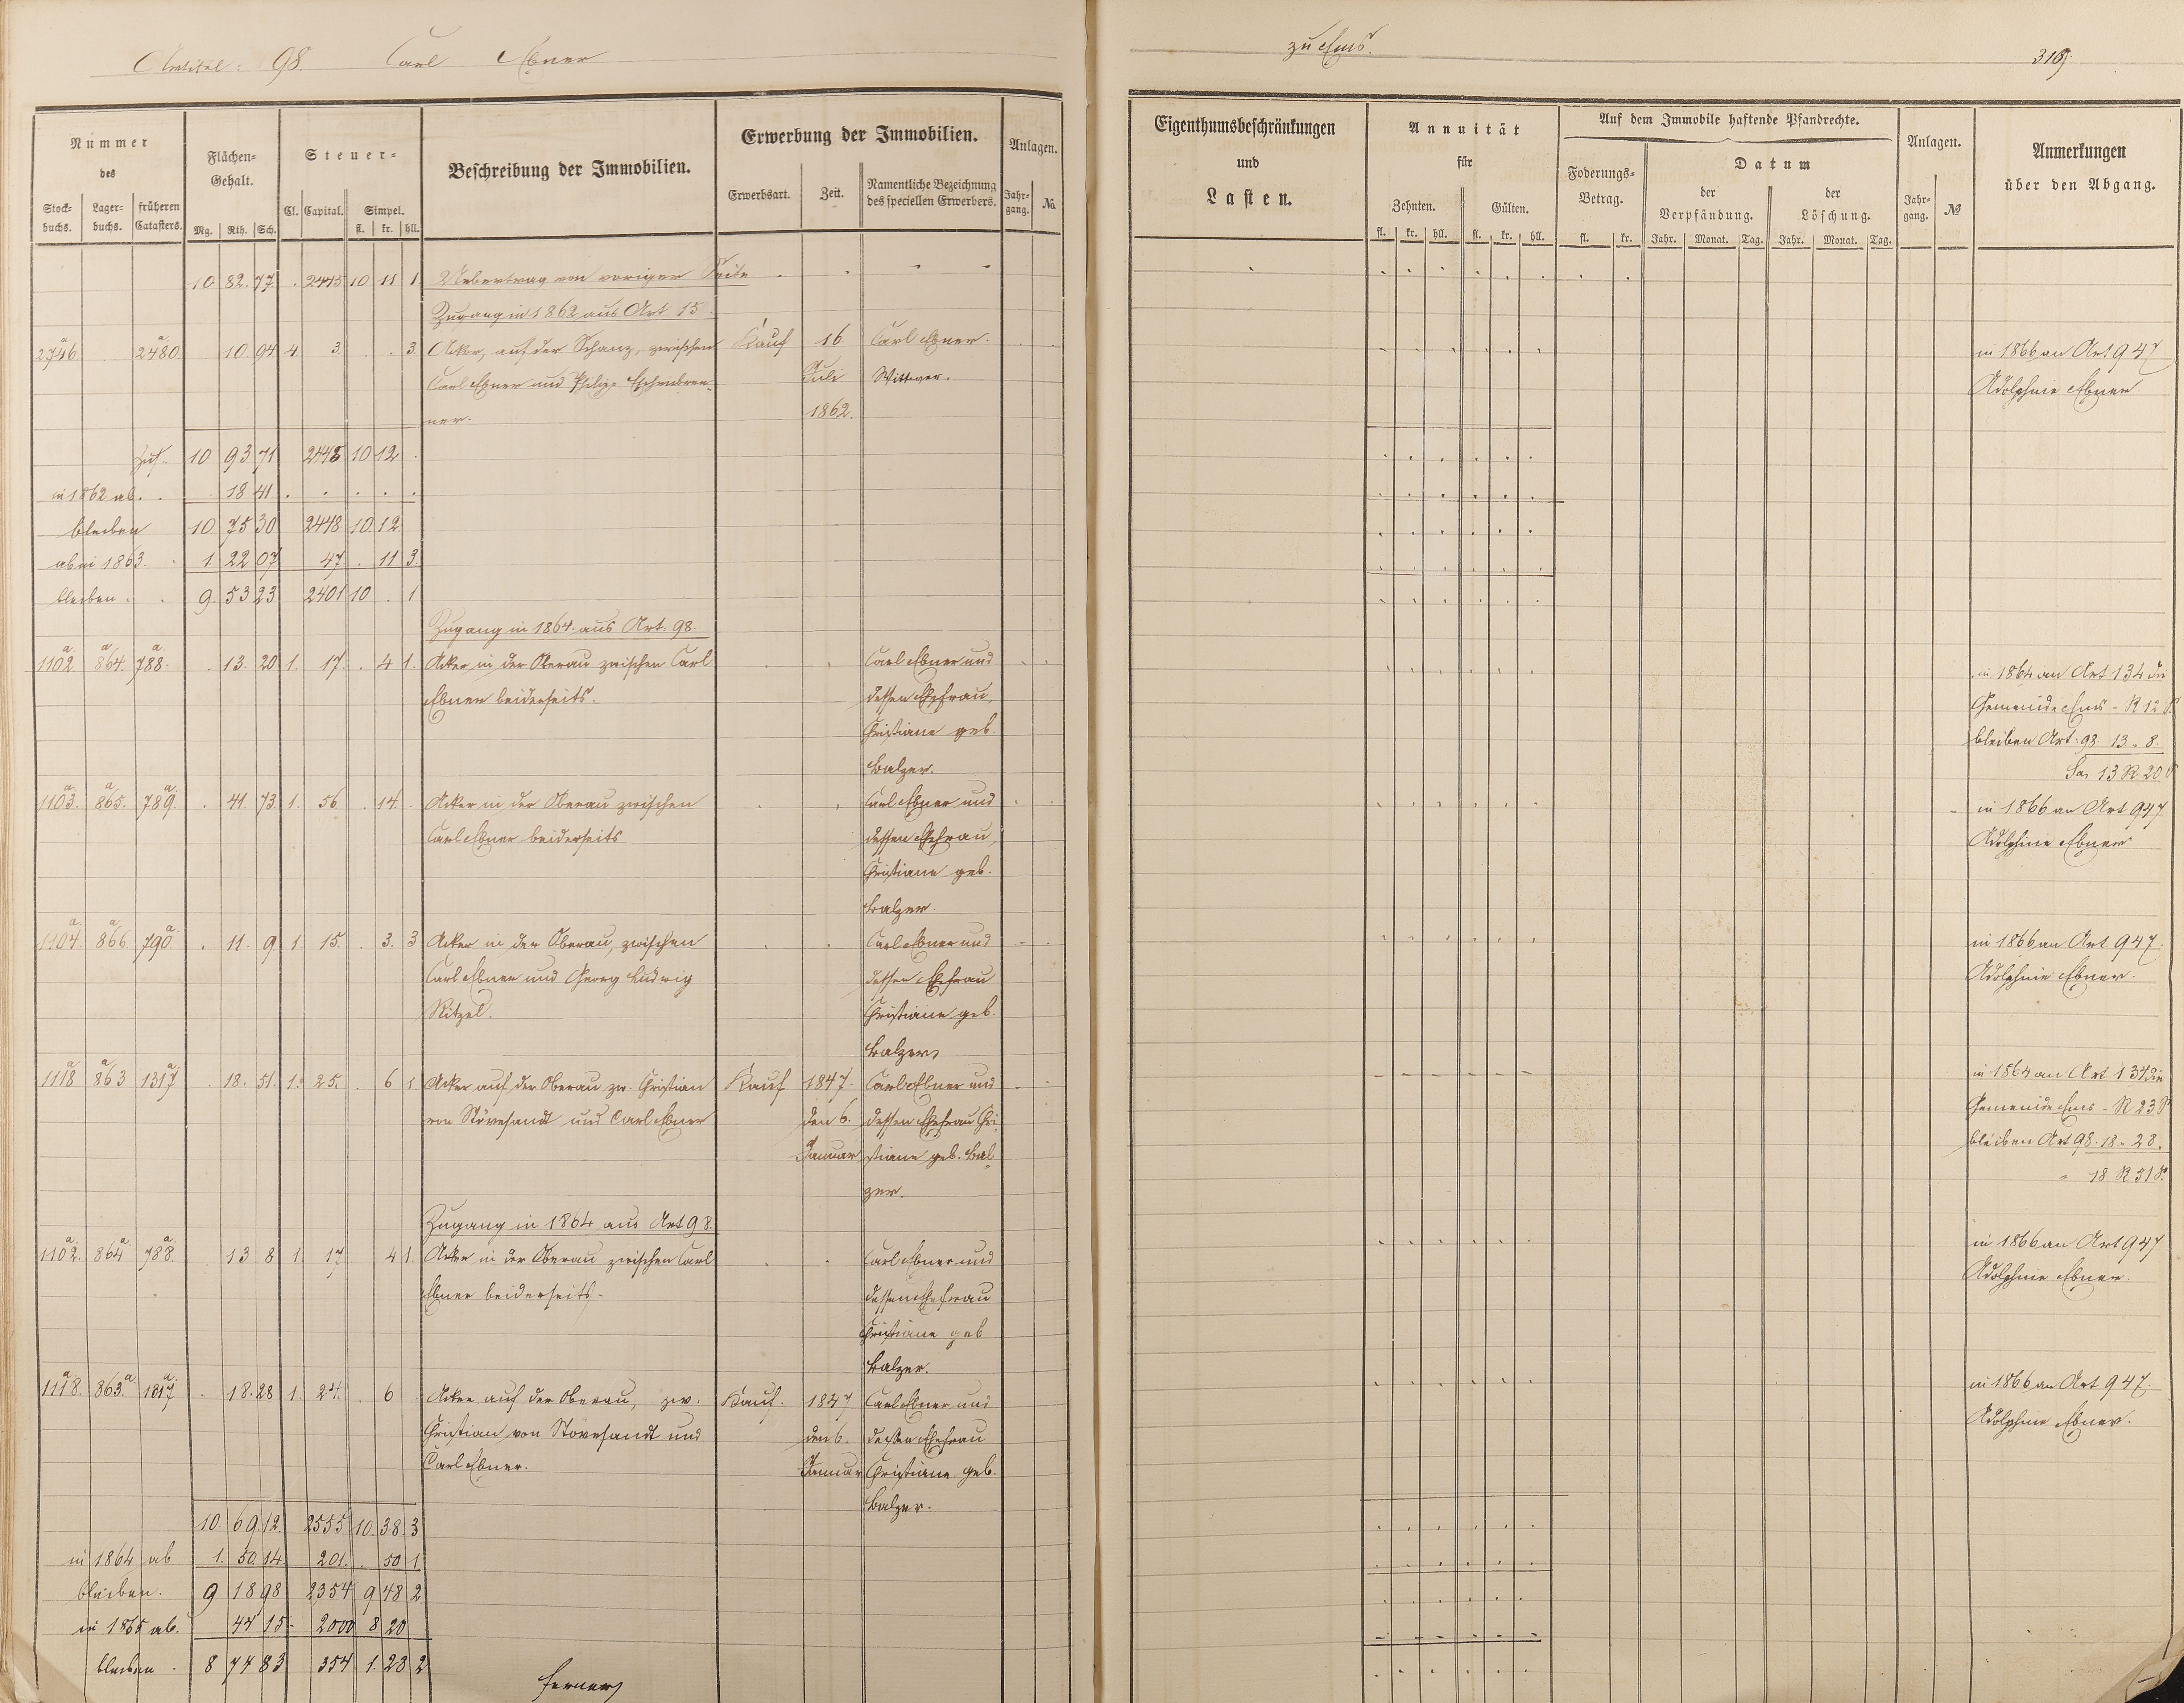 Artikel: 98. Carl Ebner
zu Ems.
319.
Nummer
des
Stock-
buchs.
Lager-
buchs.
früheren
Catasters.
Flächen-
Gehalt.
Mg. Rth. Sch.
Steuer-
Cl. Capital. Simpel.
fl. kr. hll.
Beschreibung der Immobilien.
Erwerbung der Immobilien.
Erwerbsart. Zeit.
Namentliche Bezeichnung
des speciellen Erwerbers.
Anlagen.
Jahr-
gang.
No.
Eigenthumsbeschränkungen
und
Lasten.
Annuität
für
Zehnten. Gülten.
fl. kr. hll. fl. kr. hll.
Auf dem Immobile haftende Pfandrechte.
Foderungs-
Betrag.
fl. kr.
Datum
der
Verpfändung.
der
Löschung.
Jahr. Monat. Tag. Jahr. Monat. Tag.
Anlagen.
Jahr-
gang.
№
Anmerkungen
über den Abgang.
10 82 77 . 2445 10 11 1 Uebertrag von voriger Seite
Zugang in 1862 aus Art 15.
2746 a 2480 a 10 94 4 3 . . 3 Acker, auf der Schanz, zwischen Kauf 16 Carl Ebner. in 1866 an Art 947
Carl Ebner und Philipp Eschenbren- Juli Wittwer. Adolphine Ebner
ner. 1862.
Zus. 10 93 71 2448 10 12 .
in 1862 ab. . 18 41 . . . . .
bleiben 10 75 30 2448 10 12
ab in 1863. 1 22 07 47 . 11 3
bleiben . . 9 53 23 2401 10 . 1
Zugang in 1864 aus Art: 98.
1102 a 864 a 788 a . 13 20 1. 17 . 4 1. Acker in der Oberau zwischen Carl Carl Ebner und in 1864 an Art 134 die
Ebner beiderseits. dessen Ehefrau, Gemeinde Ems - R 12 S.
Christiane geb. bleiben Art: 98 13 " 8.
Balzer. Sa 13 R 20 S
1103 a 865 a 789 a . 41 73 1. 56 . 14 . Acker in der Oberau zwischen Carl Ebner und in 1866 an Art 947
Carl Ebner beiderseits dessen Ehefrau, Adolphine Ebner
Christiane geb.
Balzer.
1104 a 866 a 790 a . 11 9 1. 15 . 3 3 Acker in der Oberau, zwischen Carl Ebner und in 1866 an Art 947.
Carl Ebner und Georg Ludwig dessen Ehefrau Adolphine Ebner.
Ritzel. Christiane geb.
Balzer,
1118 a 863 a 1317 a . 18 51 1. 25 . 6 1. Acker auf der Oberau zw. Christian Kauf 1847. Carl Ebner und in 1864 an Art 134 die
von Stövesandt und Carl Ebner den 6. dessen Ehefrau Chri Gemeinde Ems - R 23 S
Januar stiane geb. Bal bleiben Art 98. 18 " 28.
zer. " 18 R 51 S.
Zugang in 1864 aus Art 98.
1102 a 864 a 788 a 13 8 1. 17 4 1 Acker in der Oberau zwischen Carl Carl Ebner und in 1866 an Art 947
Ebner beiderseits. dessen Ehefrau Adolphine Ebner.
Christiane geb
Balzer.
1118 a 863 a 1317 a . 18 28 1. 24 . 6 . Acker auf der Oberau, zw. Kauf. 1847 Carl Ebner und in 1866 an Art 947
Christian von Stövesandt und den 6. dessen Ehefrau Adolphine Ebner.
Carl Ebner. Januar Christiane geb.
Balzer.
10 69 12 2555 10 38 3
in 1864 ab 1. 50 14 201 . 50 1
bleiben. 9 18 98 2354 9 48 2
in 1865 ab. 44 15 2000 8 20
bleiben 8 74 83 354 1 28 2
ferner,